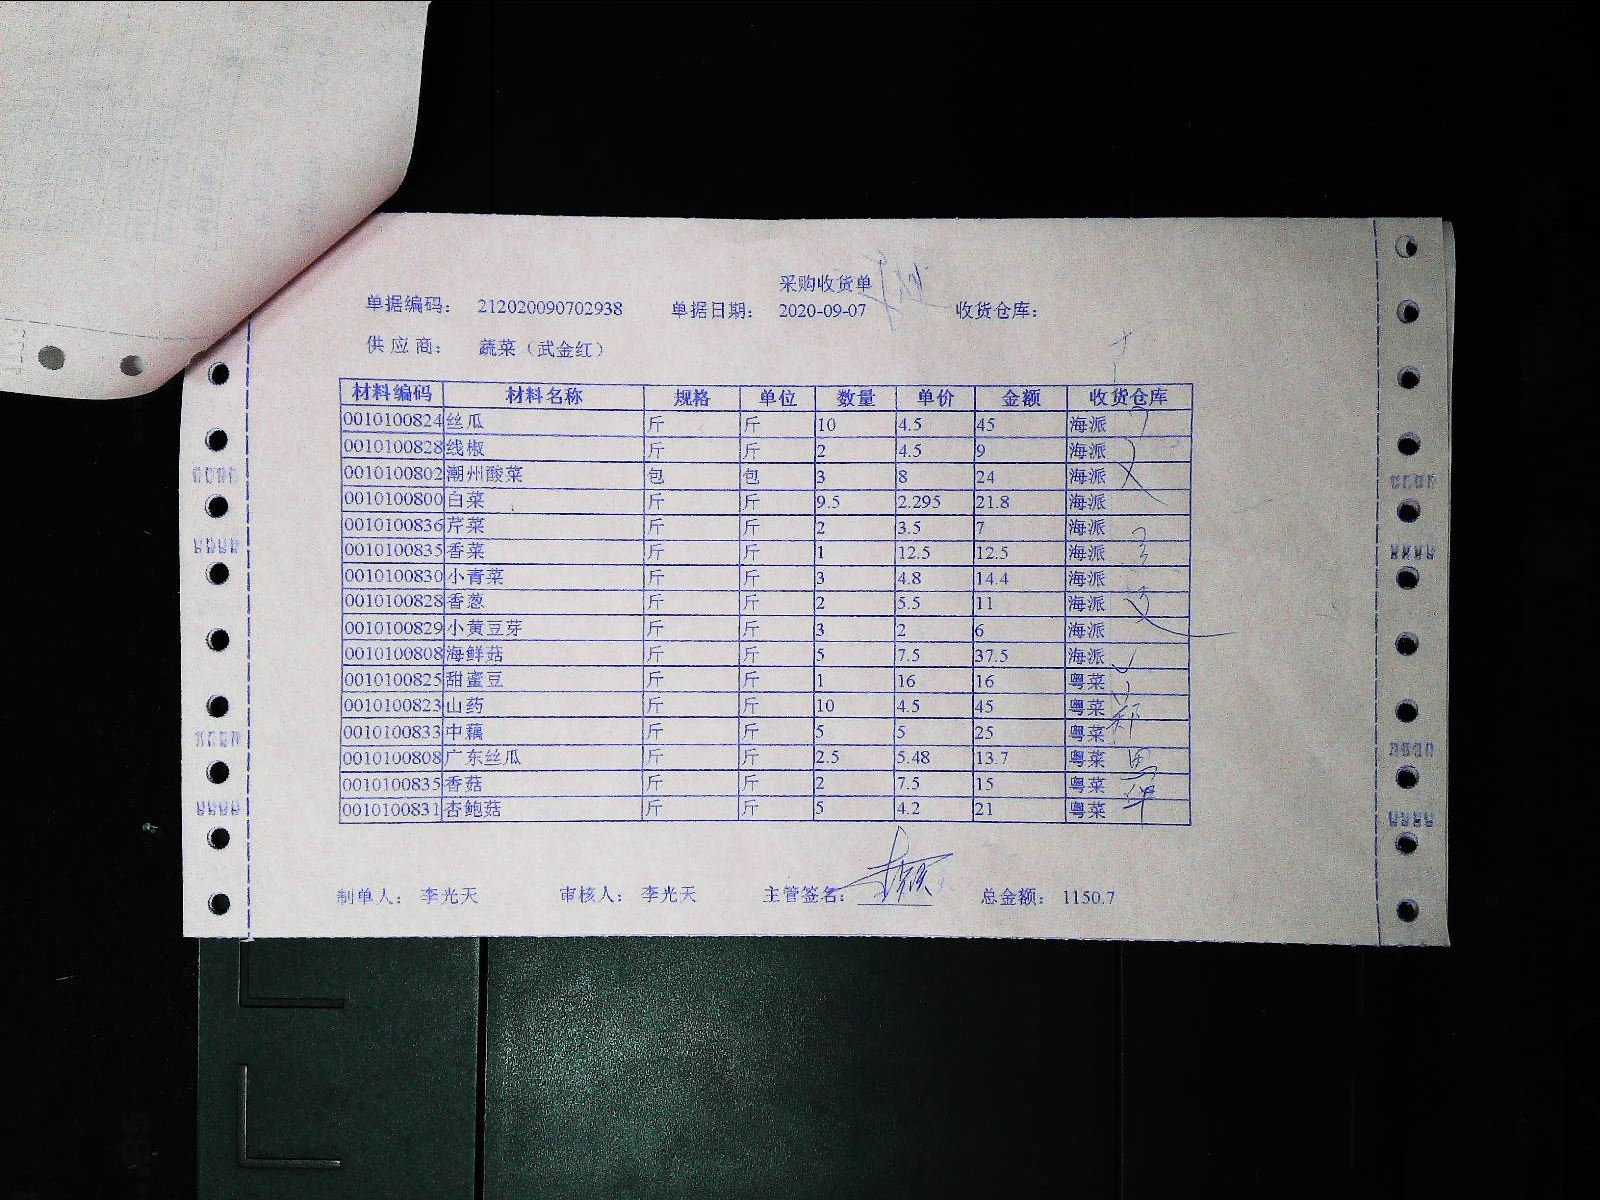 采购收货单
单据编码： 212020090702938 单据日期： 2020-09-07 收货仓库：
供应商： 蔬菜（武金红）
材料编码 材料名称 规格 单位 数量 单价 金额 收货仓库
0010100824 丝瓜 斤 斤 10 4.5 45 海派
0010100828 线椒 斤 斤 2 4.5 9 海派
0010100802 潮州酸菜 包 包 3 8 24 海派
0010100800 白菜 斤 斤 9.5 2.295 21.8 海派
0010100836 芹菜 斤 斤 2 3.5 7 海派
0010100835 香菜 斤 斤 1 12.5 12.5 海派
0010100830 小青菜 斤 斤 3 4.8 14.4 海派
0010100828 香葱 斤 斤 2 5.5 11 海派
0010100829 小黄豆芽 斤 斤 3 2 6 海派
0010100808 海鲜菇 斤 斤 5 7.5 37.5 海派
0010100825 甜蜜豆 斤 斤 1 16 16 粤菜
0010100823 山药 斤 斤 10 4.5 45 粤菜
0010100833 中藕 斤 斤 5 5 25 粤菜
0010100808 广东丝瓜 斤 斤 2.5 5.48 13.7 粤菜
0010100835 香菇 斤 斤 2 7.5 15 粤菜
0010100831 杏鲍菇 斤 斤 5 4.2 21 粤菜
制单人： 李光天 审核人： 李光天 主管签名： 总金额： 1150.7